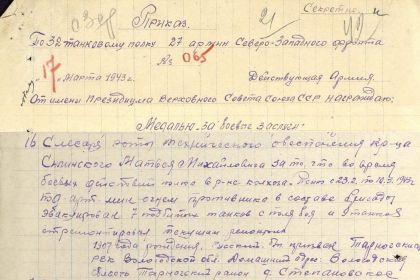 Секретно
Приказ
По 32 танковому полку 27 армии Северо-Западного фронта
№ 065
"17" марта 1943 г. Действующая Армия.
От имени Президиума Верховного Совета Союза ССР награждаю:
Медалью "За боевые заслуги"
16 Слесаря роты технического обеспечения кр-ца
Михайловича за то, что во время
боевых действий полка в р-не колхоза с 23.2 по
под арт. мин. огнем противника в составе бригады
эвакуировал 7 подбитых танков с поля боя и танков
отремонтировал текущим ремонтом
1907 года рождения. Русский. призван Тарногским
РВК Вологодской обл. Домашний адрес: Вологодская
область Тарногский район д. Степановское